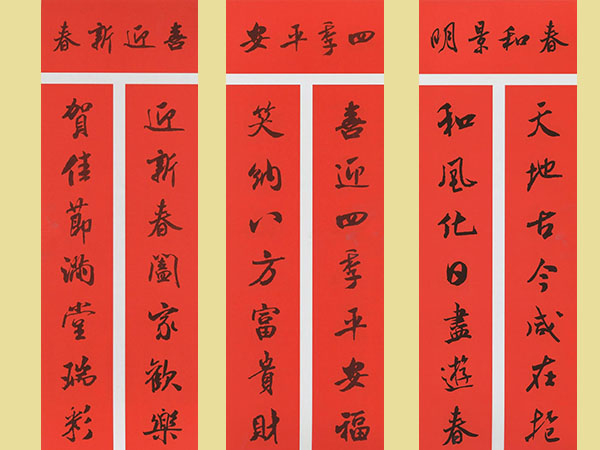 春和景明
天地古今咸在抱
和風化日盡遊春
四季平安
喜迎四季平安福
笑納八方富貴財
喜迎新春
迎新春闔家歡樂
賀佳節滿堂瑞彩